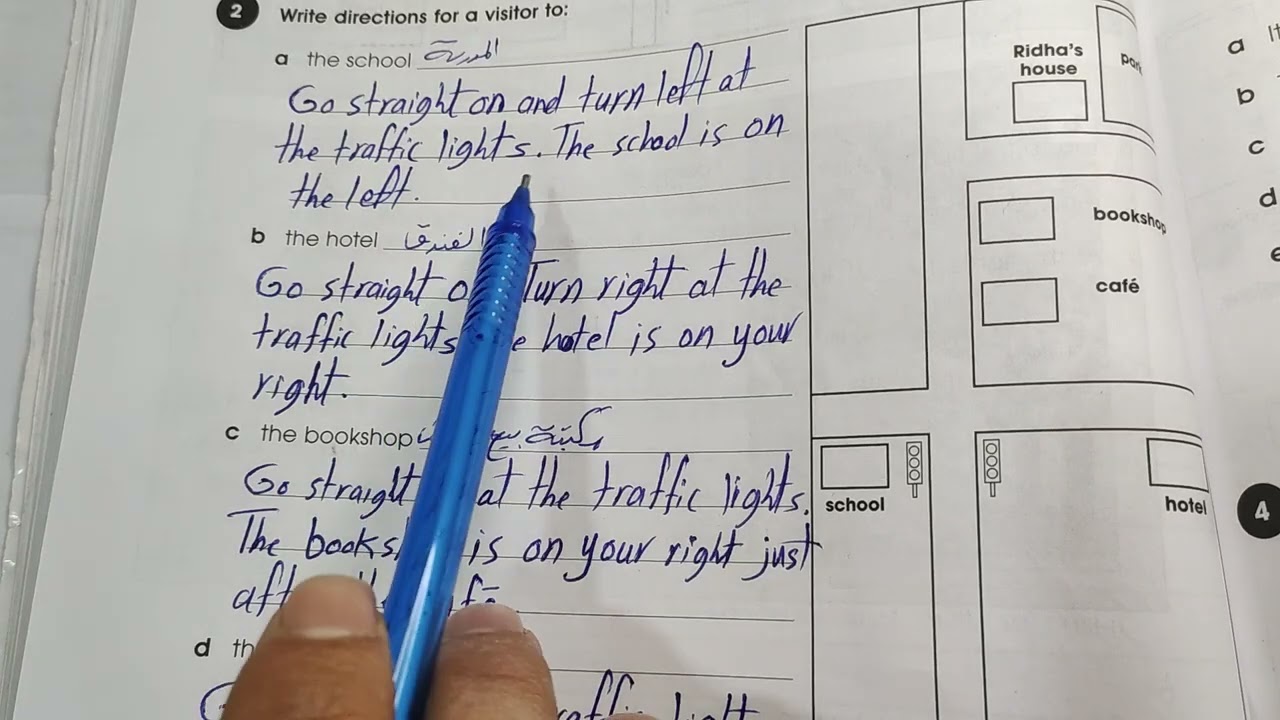 2 Write directions for a visitor to:
a the school المدرسة
Go straight on and turn left at
the traffic lights. The school is on
the left.
b the hotel الفندق
Go straight Turn right at the
traffic lights hotel is on your
right.
c the bookshop مكتبة
Go straight at the traffic lights.
The is on your right just
d
Ridha's
house
bookshop
café
school
hotel
4
a
b
c
d